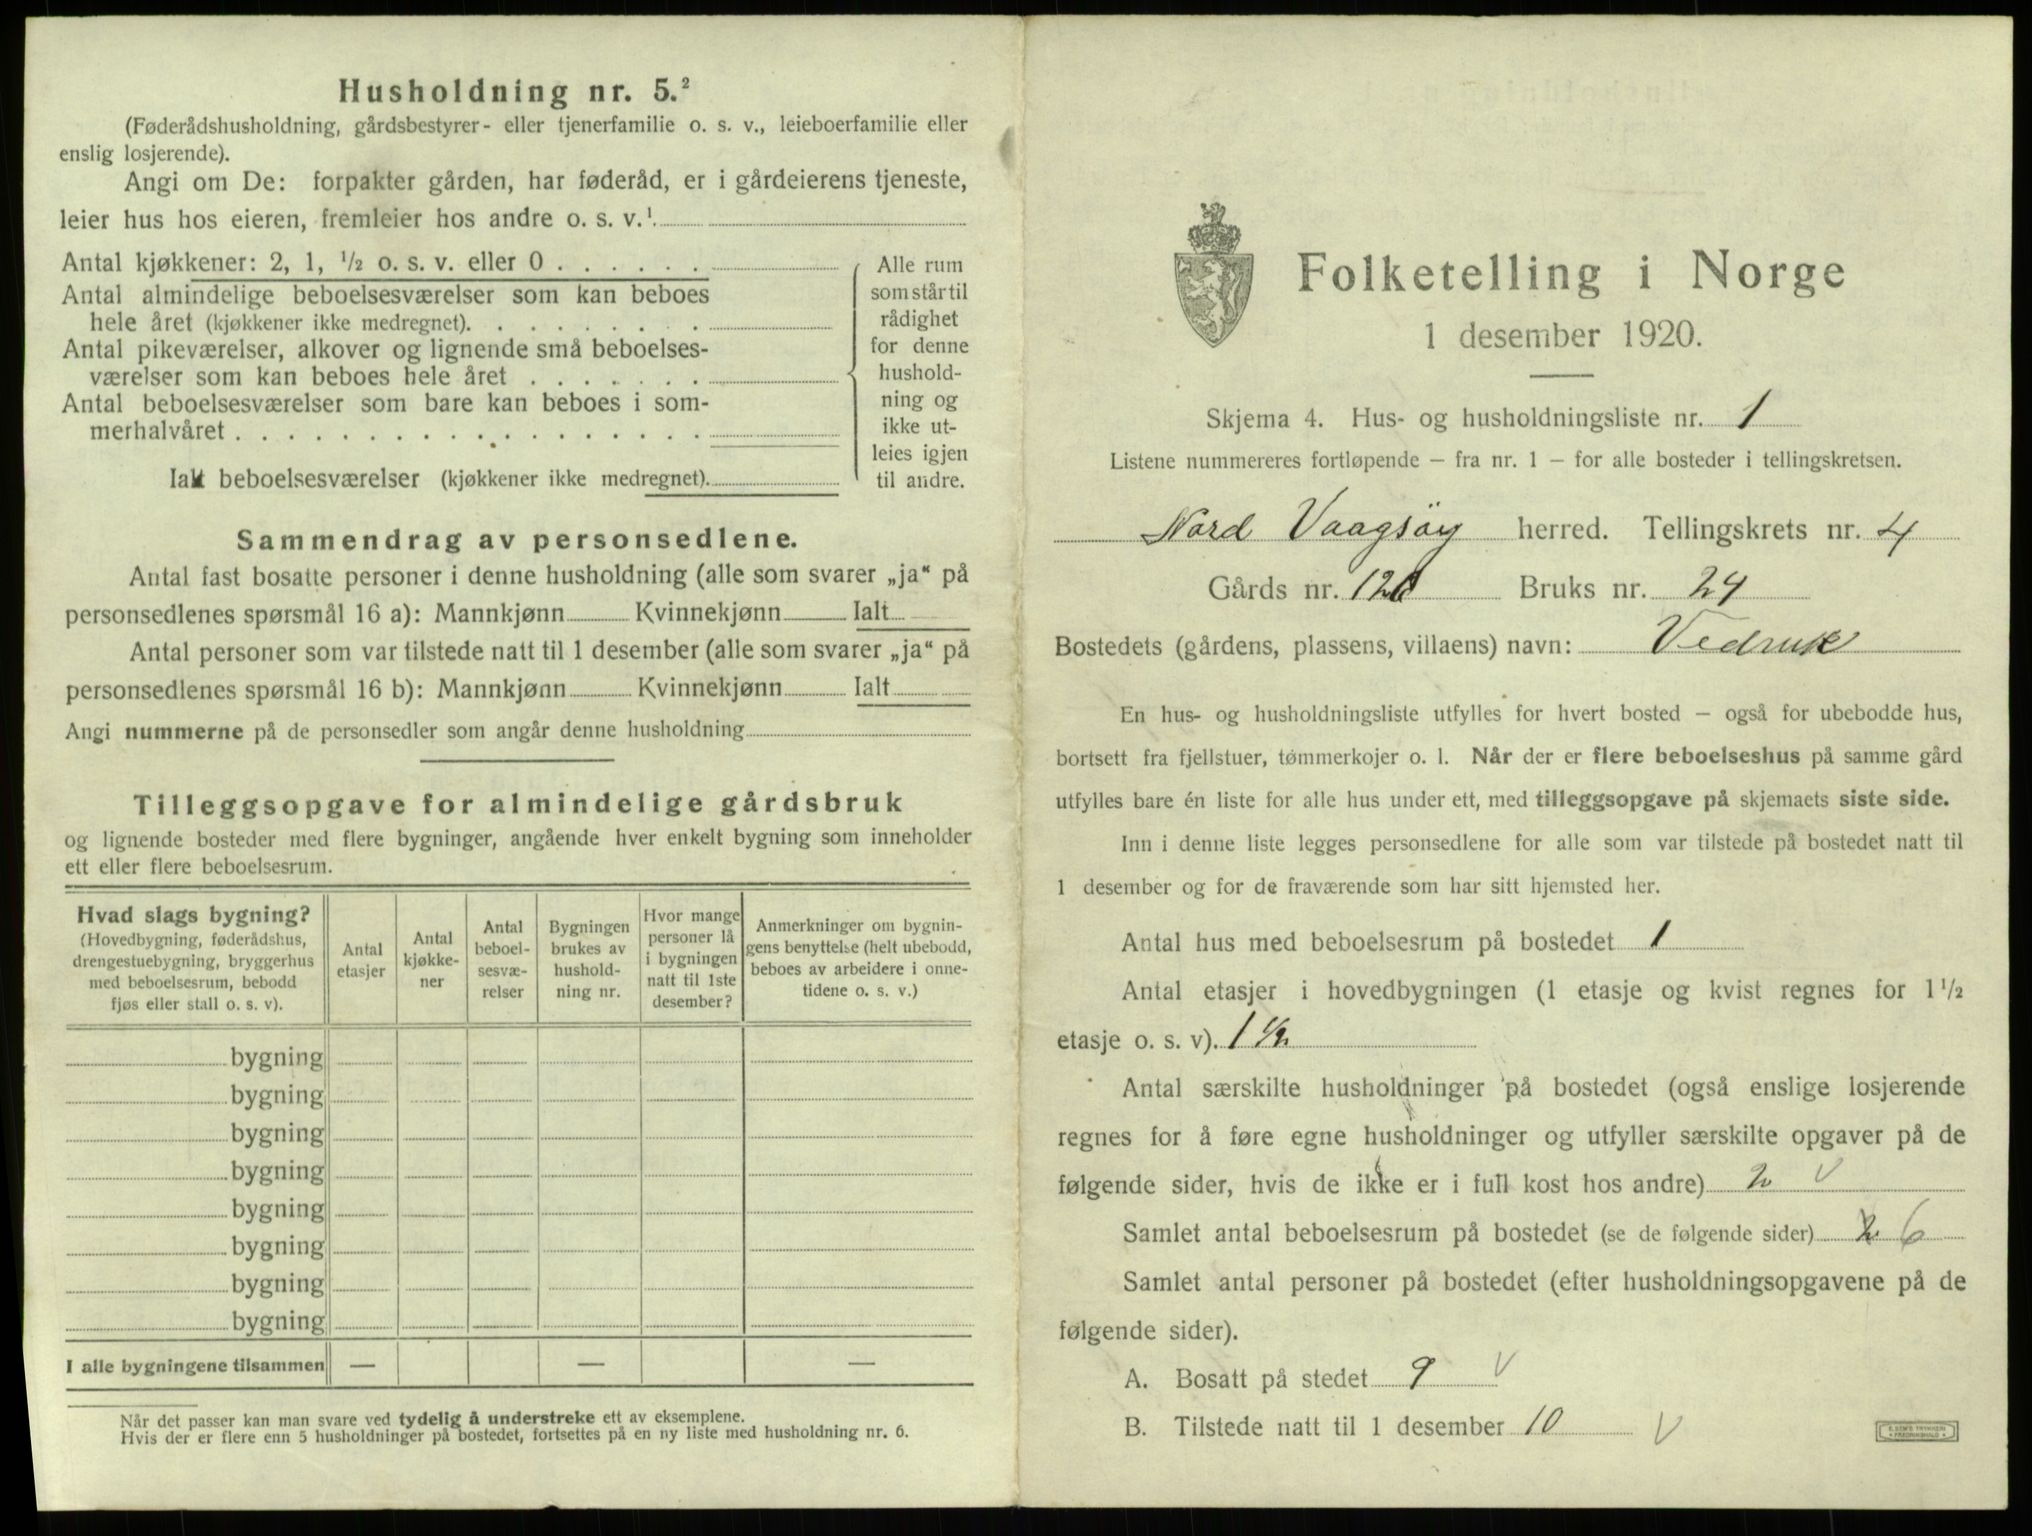 Husholdning nr. 5.²
(Føderådshusholdning, gårdsbestyrer- eller tjenerfamilie o. s. v., leieboerfamilie eller
enslig losjerende).
Angi om De: forpakter gården, har føderåd, er i gårdeierens tjeneste,
leier hus hos eieren, fremleier hos andre o. s. v.¹
Antal kjøkkener: 2, 1, ½ o. s. v. eller 0 . . . . . .
Antal almindelige beboelsesværelser som kan beboes
hele året (kjøkkener ikke medregnet). . . . . . . . .
Antal pikeværelser, alkover og lignende små beboelses-
værelser som kan beboes hele året . . . . . . .
Antal beboelsesværelser som bare kan beboes i som-
merhalvåret . . . . . . . . . . . . . . . . . .
Ialt beboelsesværelser (kjøkkener ikke medregnet).
Alle rum
som står til
rådighet
for denne
hushold-
ning og
ikke ut-
leies igjen
til andre.
Sammendrag av personsedlene.
Antal fast bosatte personer i denne husholdning (alle som svarer „ja“ på
personsedlenes spørsmål 16 a): Mannkjønn Kvinnekjønn Ialt
Antal personer som var tilstede natt til 1 desember (alle som svarer „ja“ på
personsedlenes spørsmål 16 b): Mannkjønn Kvinnekjønn Ialt
Angi nummerne på de personsedler som angår denne husholdning
Tilleggsopgave for almindelige gårdsbruk
og lignende bosteder med flere bygninger, angående hver enkelt bygning som inneholder
ett eller flere beboelsesrum.
Hvad slags bygning?
(Hovedbygning, føderådshus,
drengestuebygning, bryggerhus
med beboelsesrum, bebodd
fjøs eller stall o. s. v).
Antal
etasjer
Antal
kjøkke-
ner
Antal
beboel-
sesvæ-
relser
Bygningen
brukes av
hushold-
ning nr.
Hvor mange
personer lå
i bygningen
natt til 1ste
desember?
Anmerkninger om bygnin-
gens benyttelse (helt ubebodd,
beboes av arbeidere i onne-
tidene o. s. v.)
bygning
bygning
bygning
bygning
bygning
bygning
bygning
bygning
I alle bygningene tilsammen — — —
Når det passer kan man svare ved tydelig å understreke ett av eksemplene.
Hvis der er flere enn 5 husholdninger på bostedet, fortsettes på en ny liste med husholdning nr. 6.
Folketelling i Norge
1 desember 1920.
Skjema 4. Hus- og husholdningsliste nr. 1
Listene nummereres fortløpende – fra nr. 1 – for alle bosteder i tellingskretsen.
Nord Vaagsöy herred. Tellingskrets nr. 4
Gårds nr. 120 Bruks nr. 24
Bostedets (gårdens, plassens, villaens) navn: Vedruk
En hus- og husholdningsliste utfylles for hvert bosted – også for ubebodde hus,
bortsett fra fjellstuer, tømmerkojer o. l. Når der er flere beboelseshus på samme gård
utfylles bare én liste for alle hus under ett, med tilleggsopgave på skjemaets siste side.
Inn i denne liste legges personsedlene for alle som var tilstede på bostedet natt til
1 desember og for de fraværende som har sitt hjemsted her.
Antal hus med beboelsesrum på bostedet 1
Antal etasjer i hovedbygningen (1 etasje og kvist regnes for 1½
etasje o. s. v). 1½
Antal særskilte husholdninger på bostedet (også enslige losjerende
regnes for å føre egne husholdninger og utfyller særskilte opgaver på de
følgende sider, hvis de ikke er i full kost hos andre) 2 v
Samlet antal beboelsesrum på bostedet (se de følgende sider) 2 6
Samlet antal personer på bostedet (efter husholdningsopgavene på de
følgende sider).
A. Bosatt på stedet 9 v
B. Tilstede natt til 1 desember 10 v